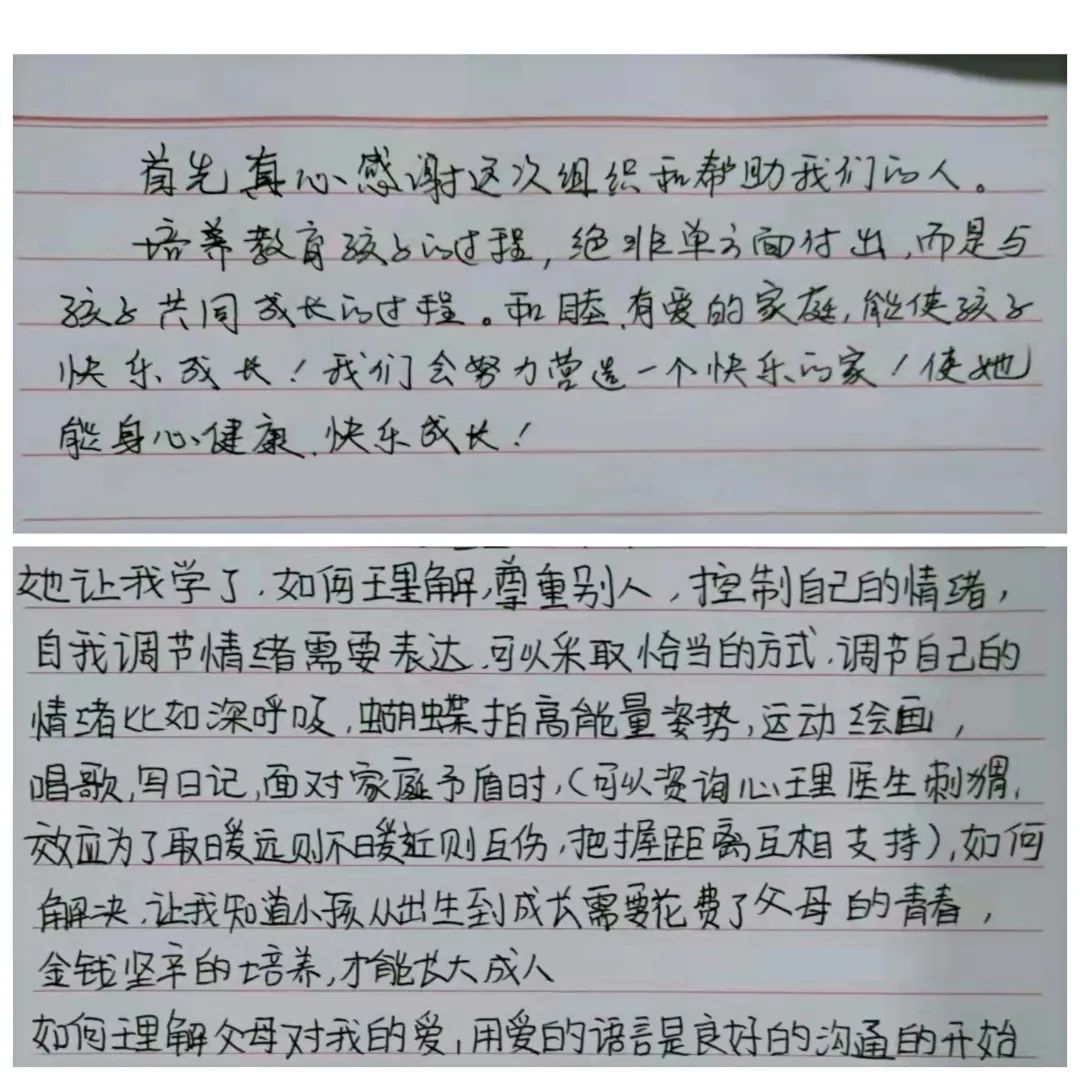 首先真心感谢这次组织和帮助我们的人。
培养教育孩子的过程，绝非单方面付出，而是与
孩子共同成长的过程。和睦、有爱的家庭，能使孩子
快乐成长！我们会努力营造一个快乐的家！使她
能身心健康、快乐成长！
她让我学了，如何理解，尊重别人，控制自己的情绪，
自我调节情绪需要表达，可以采取恰当的方式，调节自己的
情绪比如深呼吸，蝴蝶拍高能量姿势，运动绘画，
唱歌，写日记，面对家庭予盾时，（可以资询心理医生刺猬，
效应为了取暖远则不暖近则互伤，把握距离互相支持），如何
解决，让我知道小孩从出生到成长需要花费了父母的青春，
金钱坚辛的培养，才能长大成人
如何理解父母对我的爱，用爱的语言是良好的沟通的开始